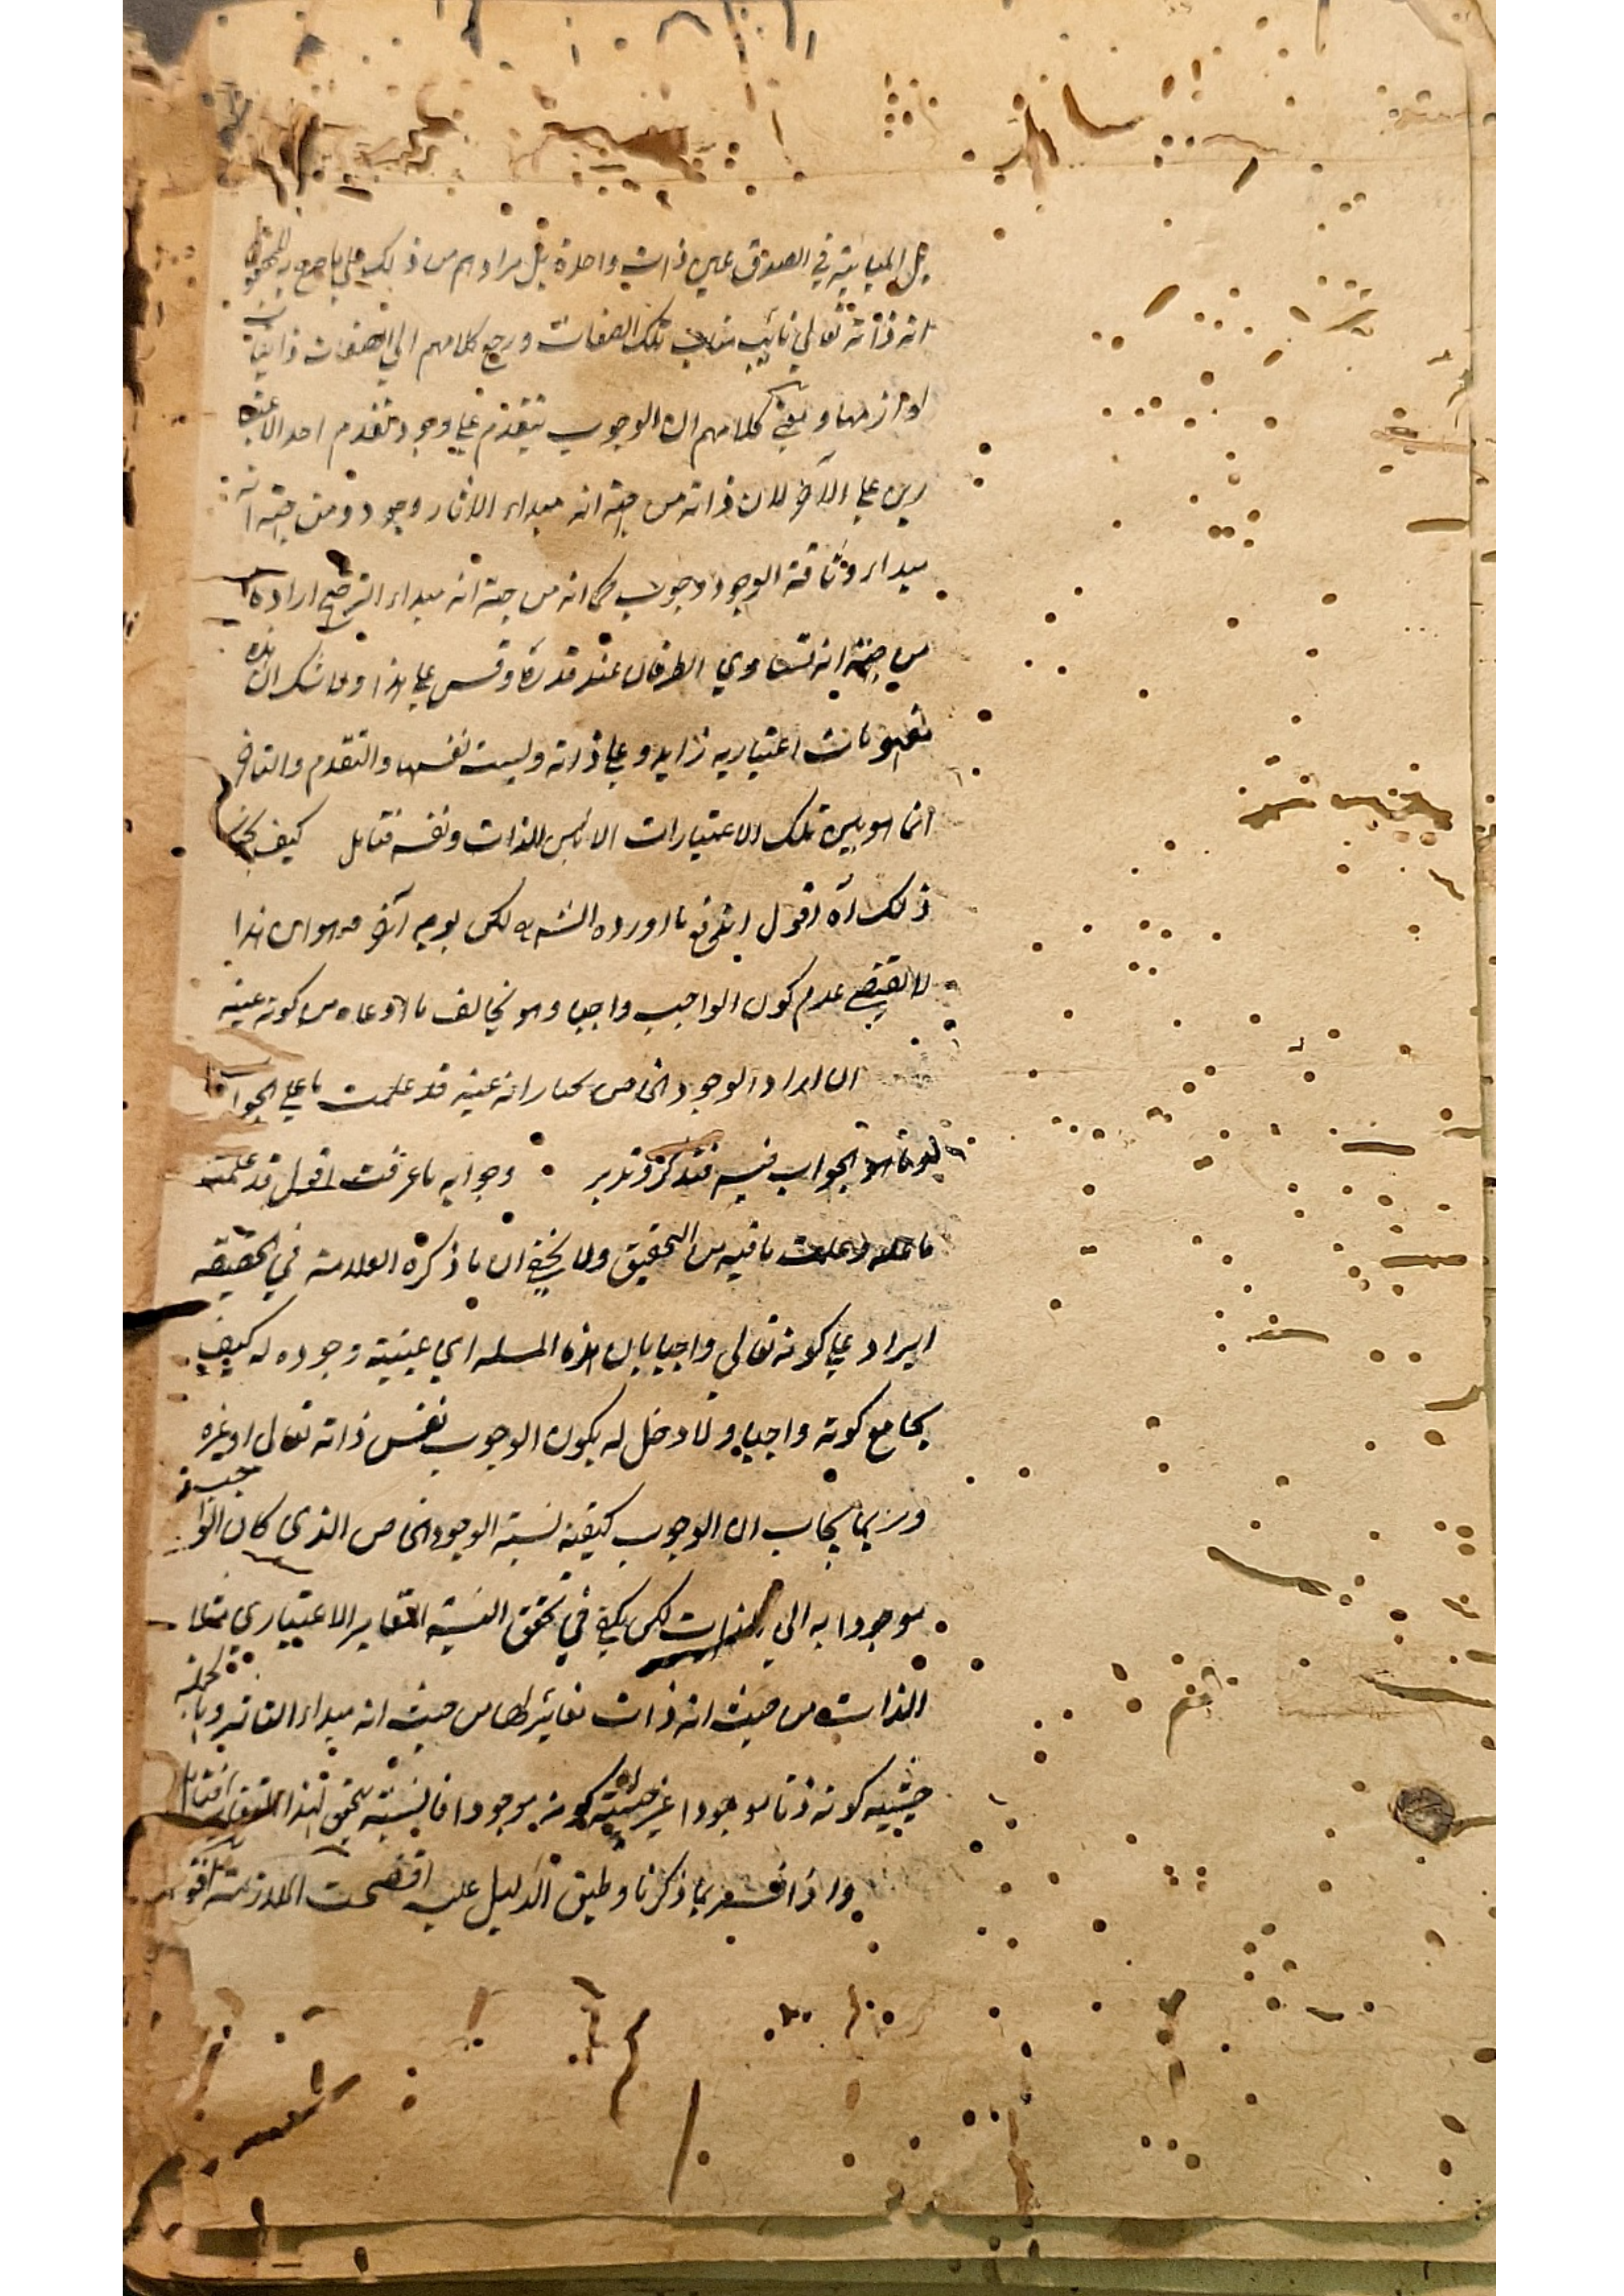 بل المباينة في الصدق عين ذات واحدة بل مرادهم من ذلك علي ما صرح به المحققون
انه ذاته تعالي نائب مناب تلك الصفات ورجع كلامهم الي نفي الصفات واثبات
لوازمها ومعني كلامهم ان الوجوب يتقدم علي وجود تقدم احد الاعتبا
رين علي الآخر لان ذاته من جهة انه مبداء الاثار وجود ومن جهة انه
مبداء وثاقة الوجود وجوب كما انه من جهة انه مبداء الترجيح ارادة
من جهة انه تساوي الطرفان عنده قدرة وقس علي هذا ولا شك ان هذه
مفهومات اعتباريه زايدة علي ذاته وليست نفسها والتقدم والتاخر
انما هو بين تلك الاعتبارات لا بين الذات ونفسه فتامل كيف يجامع
ذلك آه اقول اندفع ما اورده الش لكن يومي آخر وهو ان هذا
لا يقتضي عدم كون الواجب واجبا وهو يخالف ما ادعاه من كونه عينه
ان اراد الوجود الخاص يختار انه عينه قد علمت ما علي الجواب
وما هو الجواب فيه فتذكر وتدبر وجوابه ما عرفت اقول قد علمت
ما عليه وعلمت ما فيه من التحقيق ولا يخفي ان ما ذكره العلامة في الحقيقه
ايراد علي كونه تعالي واجبا بان هذه المسله اي عينية وجوده له كيف
يجامع كونه واجبا ولا دخل له بكون الوجوب نفس ذاته تعالي او غيره
وربما يجاب ان الوجوب كيفية نسبة الوجود الخاص الذي كان الواجب
موجودا به الي الذات لكن يكفي في تحقق النسبة التغاير الاعتباري مثلا
الذات من حيث انه ذات مغايرة لها من حيث انه مبداء التاثير وبالجملة
حيثية كونه ذاتا موجودا غير حيثية كونه موجودا فالنسبة تتحقق بهذا التغاير فتامل
واذا فسر بما ذكرنا وطبق الدليل عليه اتضحت الملازمة اقول